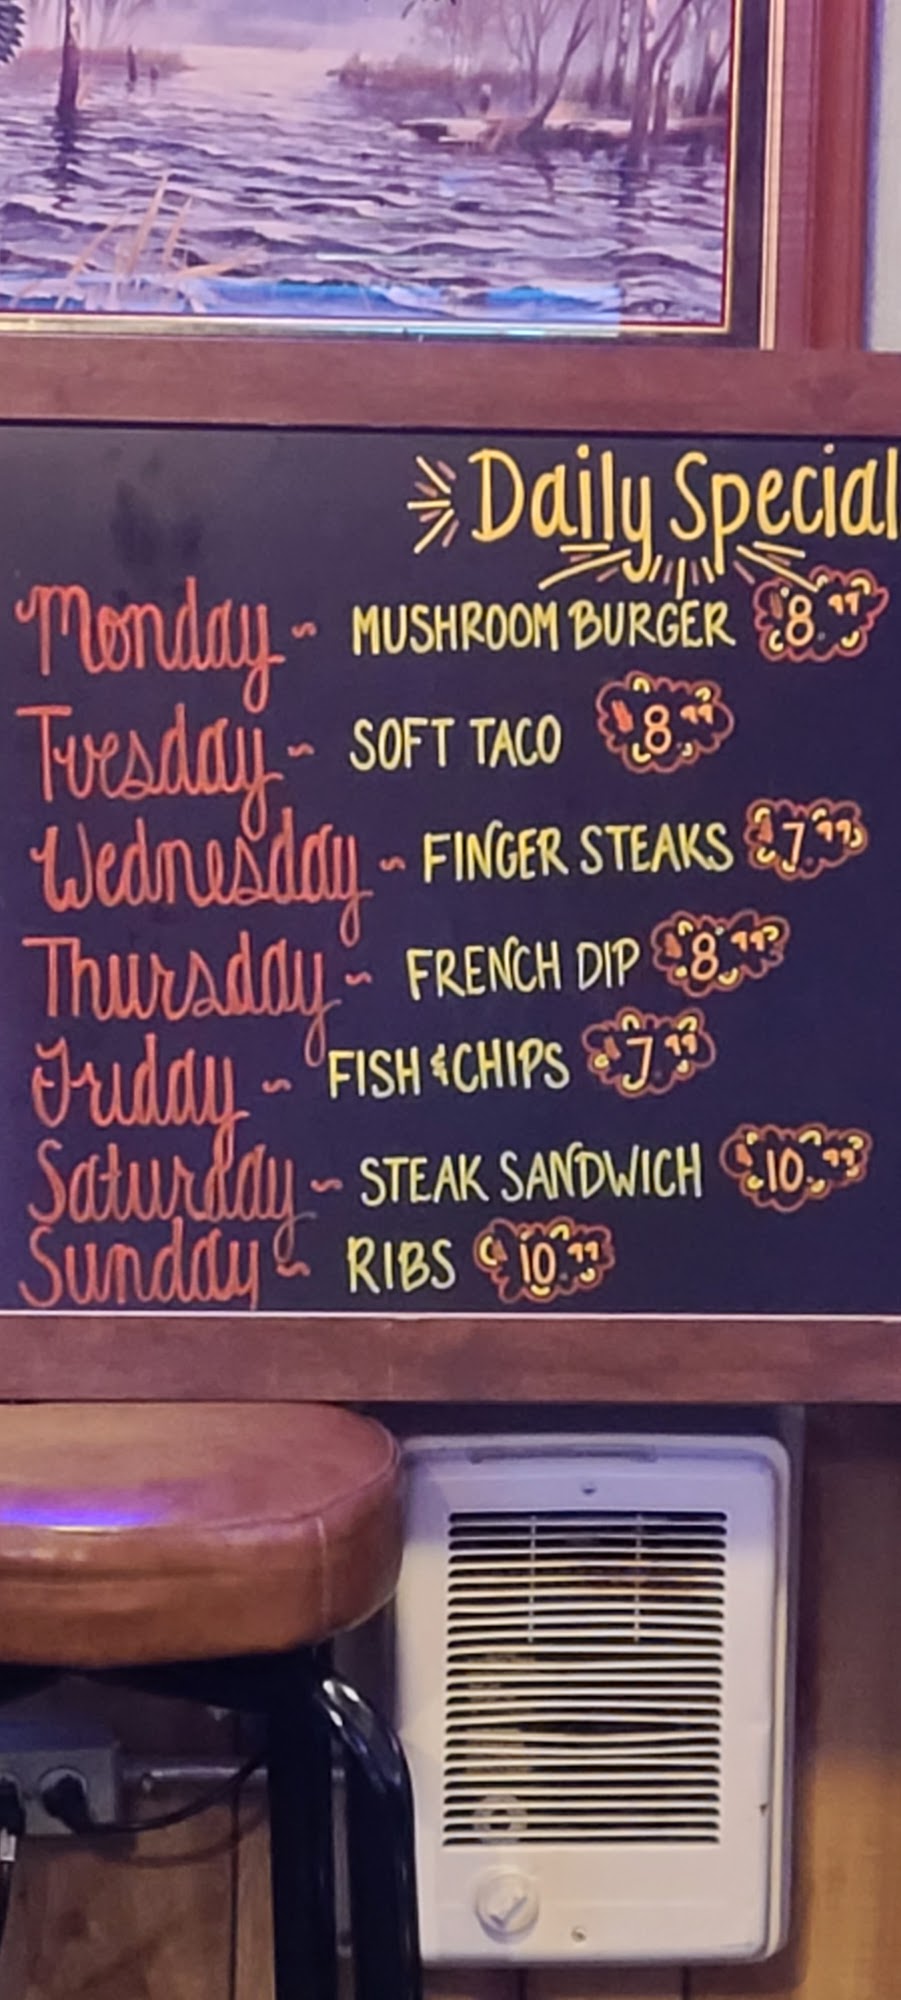 Daily Special
Monday ~ MUSHROOM BURGER 8.99
Tuesday ~ SOFT TACO 8.99
Wednesday ~ FINGER STEAKS 7.99
Thursday ~ FRENCH DIP 8.99
Friday ~ FISH & CHIPS 7.99
Saturday ~ STEAK SANDWICH 10.99
Sunday ~ RIBS 10.99